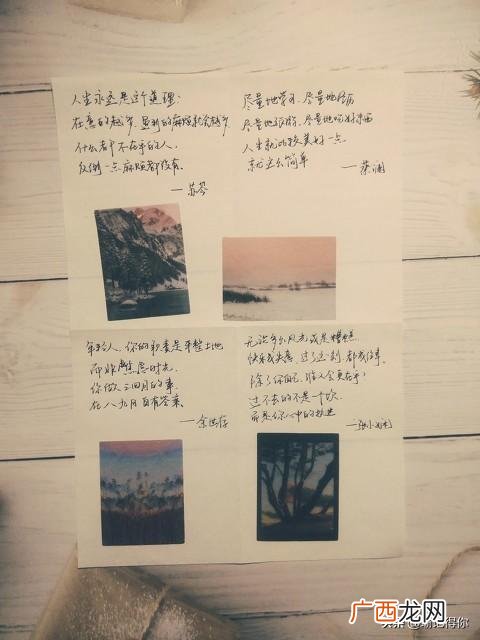 人生永远是这个道理：
在意的越少，遇到的麻烦就会越少
什么都不在乎的人，
反倒一点麻烦都没有。
—苏芩
尽量地学习、尽量地经历
尽量地旅游、尽量地吃好东西
人生就比较美好一点
就这么简单
—蔡澜
年轻人，你的职责是平整土地
而非焦虑时光
你做三四月的事，
在八九月自有答案。
—余世存
无论多么风光或是糟糕
快乐或失意，过了这刻，都成往事
除了你自己，谁人会更在乎？
过不去的不是一个坎
而是你心中的执迷
—张小娴
头条@易记得你
广西龙网